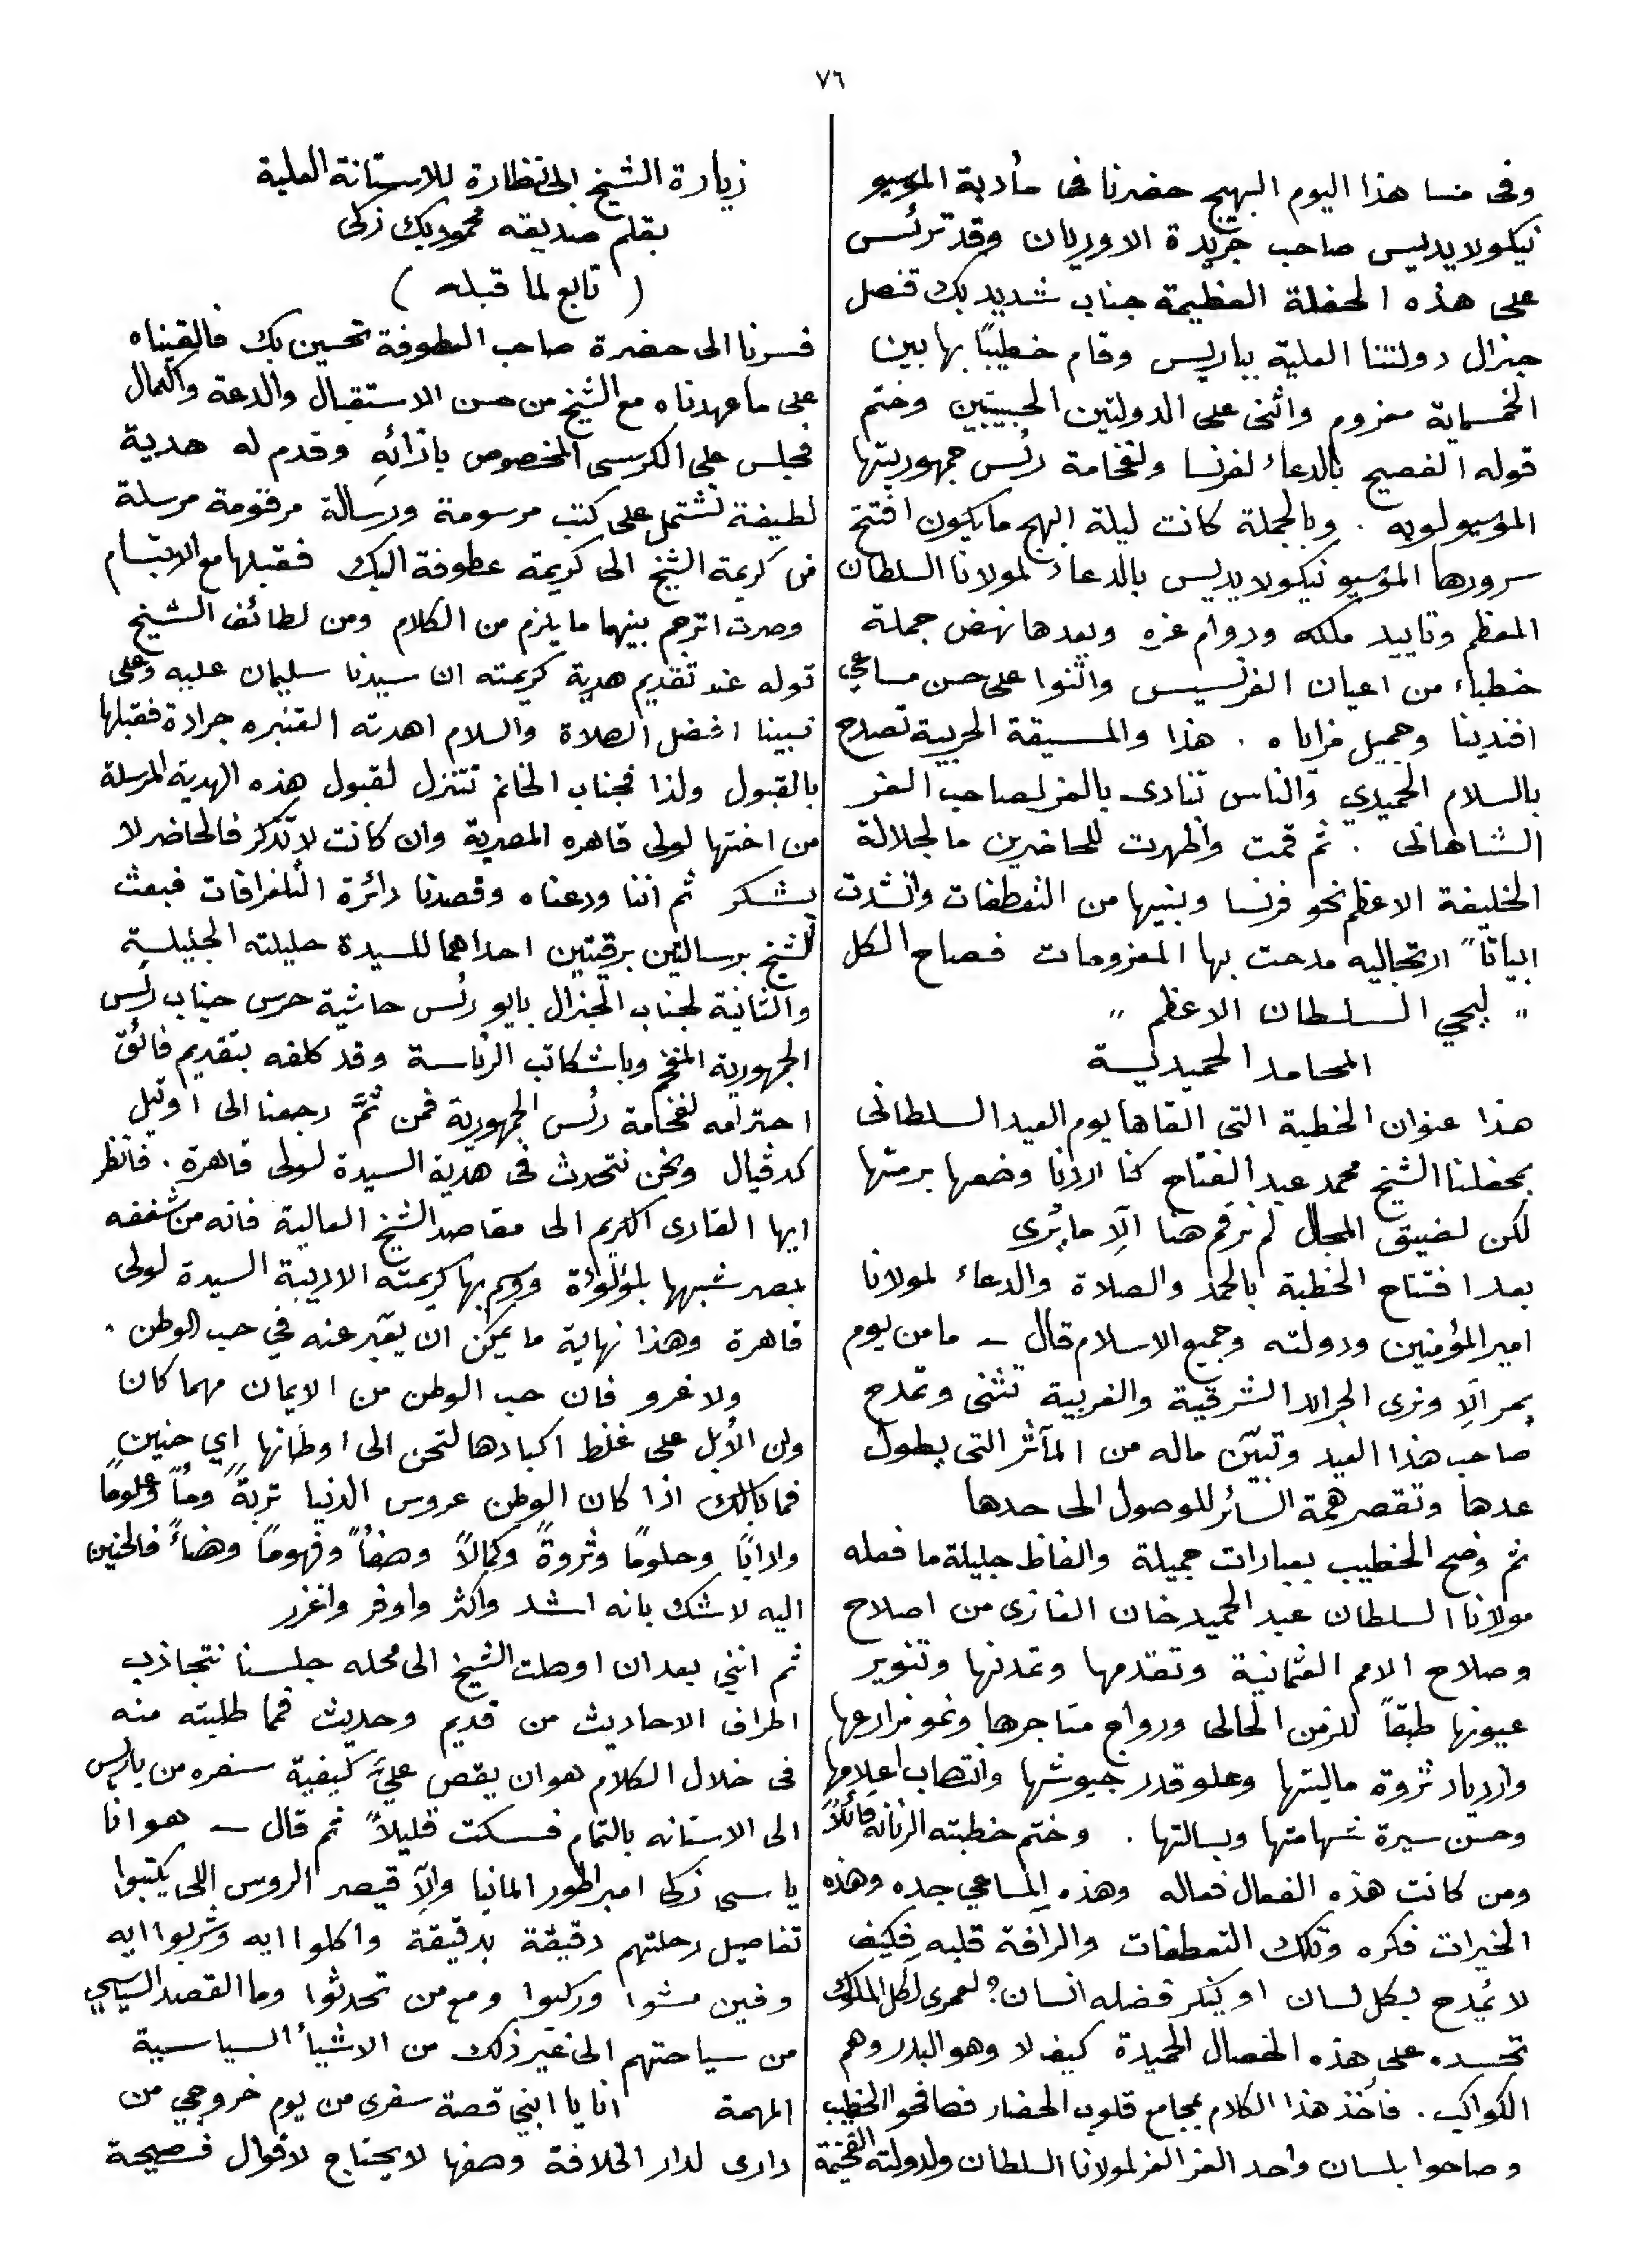 ٧٦
وفى مسا هذا اليوم البهيج حضرنا فى مأدبة الموسيو
نيكولايديس صاحب جريدة الاوريان وقد ترئس
على هذه الحفلة العظيمة جناب شديد بك قنصل
جنرال دولتنا العلية بباريس وقام خطيبًا بها بين
الخمسماية معزوم واثنى على الدولتين الحبيبتين وختم
قوله الفصيح بالدعاء لفرنسا ولفخامة رئس جمهوريتها
الموسيو لوبه . وبالجملة كانت ليلة ابهج ما يكون افتتح
سرورها الموسيو نيكولايديس بالدعاء لمولانا السلطان
المعظم وتاييد ملكه ودوام عزه وبعدها نهض جملة
خطباء من اعيان الفرنسيس واثنوا على حسن مساعي
افندينا وجميل مزاياه . هذا والمسيقة الحربية تصدح
بالسلام الحميدي والناس تنادى بالعز لصاحب العز
الشاهانى . ثم قمت واظهرت للحاضرين ما لجلالة
الخليفة الاعظم نحو فرنسا وبنيها من التعطفات وانشدت
ابياتاً ارتجاليه مدحت بها المعزومات فصاح الكل
" ليحي السلطان الاعظم "
المحامد الحميدية
هذا عنوان الخطبة التى القاها يوم العيد السلطانى
بمحفلنا الشيخ محمد عبد الفتاح كنا اردنا وضعها برمتها
لكن لضيق المجال لم نرقم هنا الّا ما يُرى
بعد افتتاح الخطبة بالحمد والصلاة والدعاء لمولانا
امير المؤمنين ودولته وجميع الاسلام قال – ما من يوم
يمر الّا ونرى الجرائد الشرقية والغربية تثنى وتمدح
صاحب هذا العيد وتبيّن ماله من المآثر التى يطول
عدها وتقصر همة السائر للوصول الى حدها
ثم وضح الخطيب بعبارات جميلة والفاظ جليلة ما فعله
مولانا السلطان عبد الحميد خان الغازى من اصلاح
وصلاح الامم العثمانية وتقدمها وتمدنها وتنوير
عيونها طبقاً للزمن الحالى ورواج متاجرها ونمو مزارعها
وازدياد ثروة ماليتها وعلو قدر جيوشها وانتصاب اعلامها
وحسن سيرة شهامتها وبسالتها . وختم خطبته الرنانه قائلاً
ومن كانت هذه الفعال فعاله وهذه المساعي جده وهذه
الخيرات فكره وتلك التعطفات والرافة قلبه فكيف
لا يُمدح بكل لسان او ينكر فضله انسان؟ لعمرى لكل الملوك
تحسده على هذه الخصال الحميدة كيف لا وهو البدر وهم
الكواكب . فاخذ هذا الكلام بمجامع قلوب الحضار فصافحو الخطيب
وصاحوا بلسان واحد العز العز لمولانا السلطان ولدولته الفخيمة
زيارة الشيخ ابى نظارة للاستانة العلية
بقلم صديقه محمود بك زكى
( تابع لما قبله )
فسرنا الى حضرة صاحب العطوفة تحسين بك فالقيناه
على ما عهدناه مع الشيخ من حسن الاستقبال والدعة والكمال
فجلس على الكرسى المخصوص بازائهِ وقدم له هدية
لطيفة تشتمل على كتب مرسومة ورسالة مرقومة مرسلة
من كريمة الشيخ الى كريمة عطوفة البك فقبلها مع الابتسام
وصرت اترجم بينهما ما يلزم من الكلام ومن لطائف الشيخ
قوله عند تقديم هدية كريمته ان سيدنا سليمان عليه وعلى
نبينا افضل الصلاة والسلام اهدته القنبره جرادة فقبلها
بالقبول ولذا فجناب الخانم تتنزل لقبول هذه الهدية المرسلة
من اختها لولى قاهره المصرية وان كانت لا تذكر فالحاضر لا
يشكر ثم اننا ودعناه وقصدنا دائرة التلغرافات فبعث
الشيخ برسالتين برقيتين احداهما للسيدة حليلته الجليلة
والثانية لجناب الجنرال بايو رئس حاشية حرس جناب رئس
الجمهورية المفخم وباشكاتب الرئاسة وقد كلفه بتقديم فائق
احترامه لفخامة رئس الجمهورية فمن ثَمَّ رجعنا الى اوتيل
كدڤيال ونحن نتحدث فى هدية السيدة لولى قاهرة . فانظر
ايها القارى الكريم الى مقاصد الشيخ العالية فانه من شغفه
بمصر شبهها بلؤلؤة ووسم بها كريمته الاديبة السيدة لولى
قاهرة وهذا نهاية ما يمكن ان يعبر عنه في حب الوطن .
ولا غرو فان حب الوطن من الايمان مهما كان
وان الأبل على غلظ اكبادها لتحن الى اوطانها اي حنين
فما بالك اذا كان الوطن عروس الدنيا تربةً ومأً وعلومًا
وادابًا وحلومًا وثروةً وكمالاً وصفأً وفهومًا وهنأً فالحنين
اليه لا شك بانه اشد واكثر واوفر واغزر
ثم انني بعد ان اوصلت الشيخ الى محله جلسنا نتجاذب
اطراف الاحاديث من قديم وحديث فمما طلبته منه
فى خلال الكلام هو ان يقص عليَّ كيفية سفره من باريس
الى الاستانه بالتمام فسكت قليلاً ثم قال – هو انا
يا سى زكى امبراطور المانيا والّا قيصر الروس اللى يكتبوا
تفاصيل رحلتهم دقيقة بدقيقة واكلوا ايه وشربوا ايه
وفين مشوا وركبوا ومع من تحدثوا وما القصد السياسي
من سياحتهم الى غير ذلك من الاشيأ السياسية
المهمة انا يا ابني قصة سفرى من يوم خروجي من
دارى لدار الخلافة وصفها لا يحتاج لاقوال فصيحة